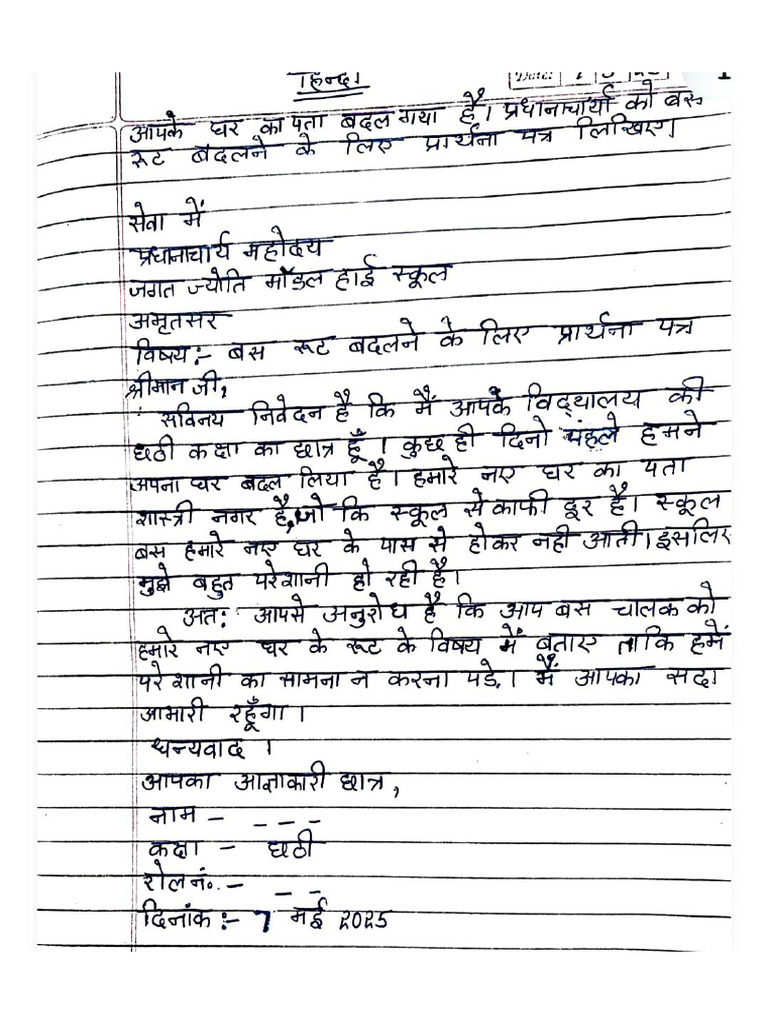 हिन्दी
Date:
आपके घर का पता बदल गया है। प्रधानाचार्या को बस
रूट बदलने के लिए प्रार्थना पत्र लिखिए।
सेवा में
प्रधानाचार्य महोदय
जगत ज्योति मॉडल हाई स्कूल
अमृतसर
विषय:- बस रूट बदलने के लिए प्रार्थना पत्र
श्रीमान जी,
सविनय निवेदन है कि मैं आपके विद्यालय की
छठी कक्षा का छात्र हूँ। कुछ ही दिनो पहले हमने
अपना घर बदल लिया है। हमारे नए घर का पता
शास्त्री नगर है, जो कि स्कूल से काफी दूर है। स्कूल
बस हमारे नए घर के पास से होकर नही आती। इसलिए
मुझे बहुत परेशानी हो रही है।
अत: आपसे अनुरोध है कि आप बस चालक को
हमारे नए घर के रूट के विषय में बताए ताकि हमें
परेशानी का सामना न करना पड़े। मैं आपका सदा
आभारी रहूँगा।
धन्यवाद।
आपका आज्ञाकारी छात्र,
नाम - _ _ _
कक्षा - छठी
रोल नं. - _ _
दिनांक:- 7 मई 2025